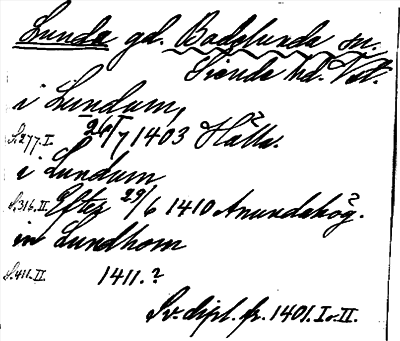 Lunda gd. Badelunda sn.
Siende hd. Vstl.
i Lundum,
S. 277. I. 26/7 1403 Hälla.
i Lundum
S. 316. II. Efter 29/6 1410 Anundshög.
in Lundhom
S. 411. II. 1411.?
Sv. dipl. fr. 1401. I o. II.